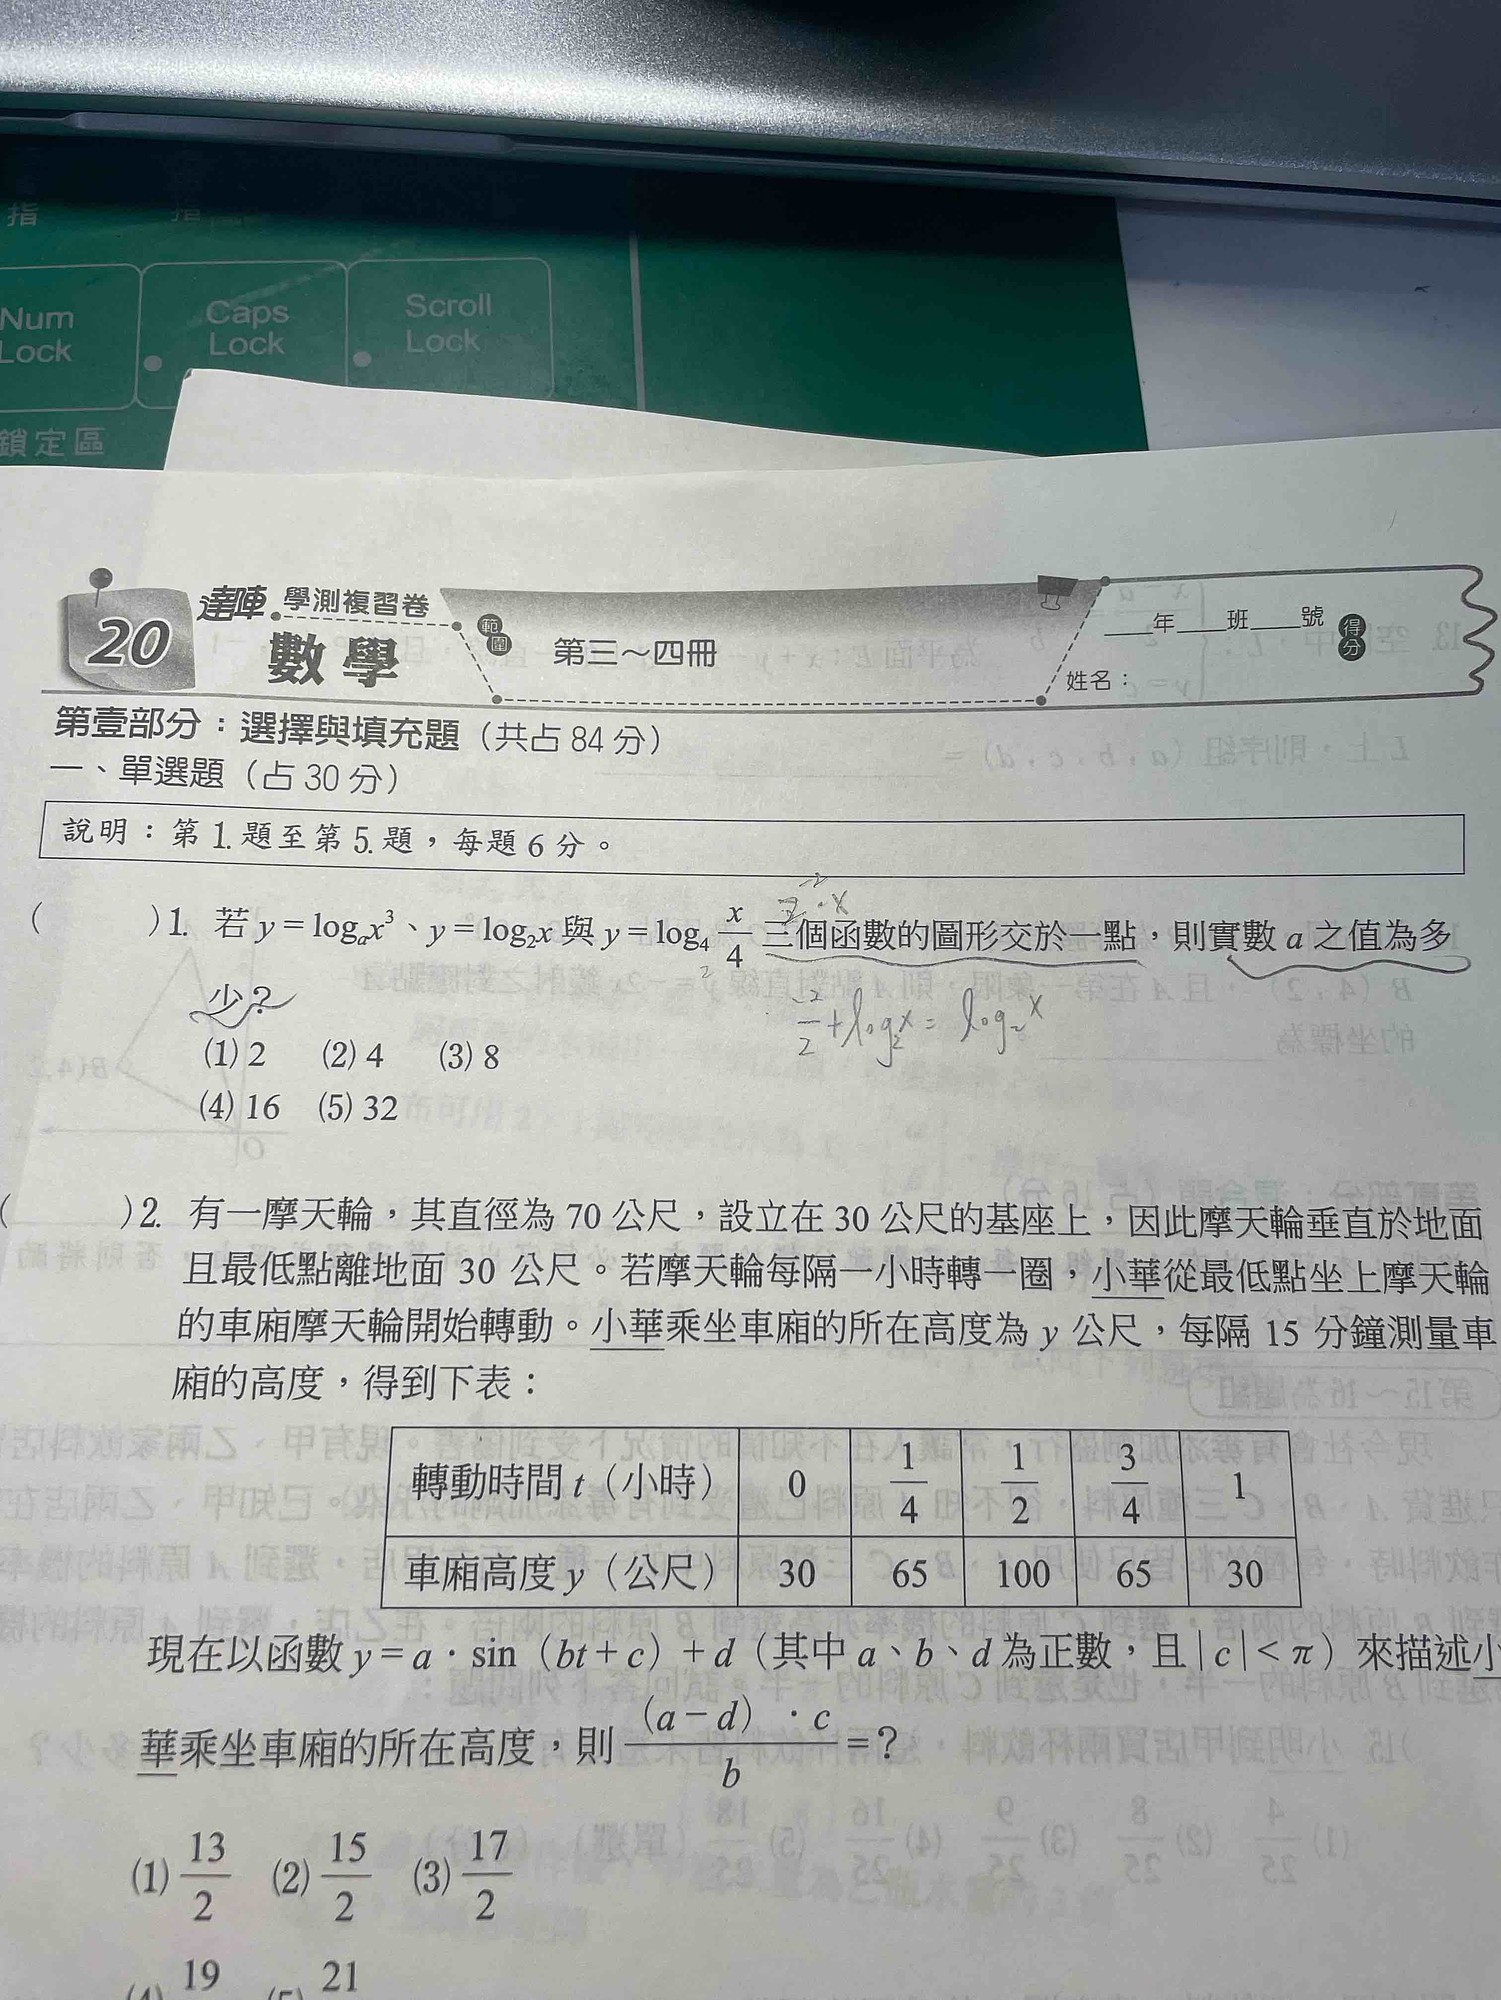 指
Num
Lock
Caps
Lock
Scroll
Lock
鎖定區
20
達陣 學測複習卷
數學
範圍
第三～四冊
___年___班___號
得分
姓名：
第壹部分：選擇與填充題（共占 84 分）
一、單選題（占 30 分）
說明：第 1. 題至第 5. 題，每題 6 分。
(　　) 1. 若 y = logₐx³、y = log₂x 與 y = log₄ x/4 三個函數的圖形交於一點，則實數 a 之值為多
少？
-2/2 + log₂x = log₂x
(1) 2　(2) 4　(3) 8
(4) 16　(5) 32
(　　) 2. 有一摩天輪，其直徑為 70 公尺，設立在 30 公尺的基座上，因此摩天輪垂直於地面
且最低點離地面 30 公尺。若摩天輪每隔一小時轉一圈，小華從最低點坐上摩天輪
的車廂摩天輪開始轉動。小華乘坐車廂的所在高度為 y 公尺，每隔 15 分鐘測量車
廂的高度，得到下表：
轉動時間 t（小時） 0 1/4 1/2 3/4 1
車廂高度 y（公尺） 30 65 100 65 30
現在以函數 y = a · sin（bt + c）+ d（其中 a、b、d 為正數，且 | c | < π）來描述小
華乘坐車廂的所在高度，則 (a − d) · c / b = ？
(1) 13/2　(2) 15/2　(3) 17/2
(4) 19　(5) 21